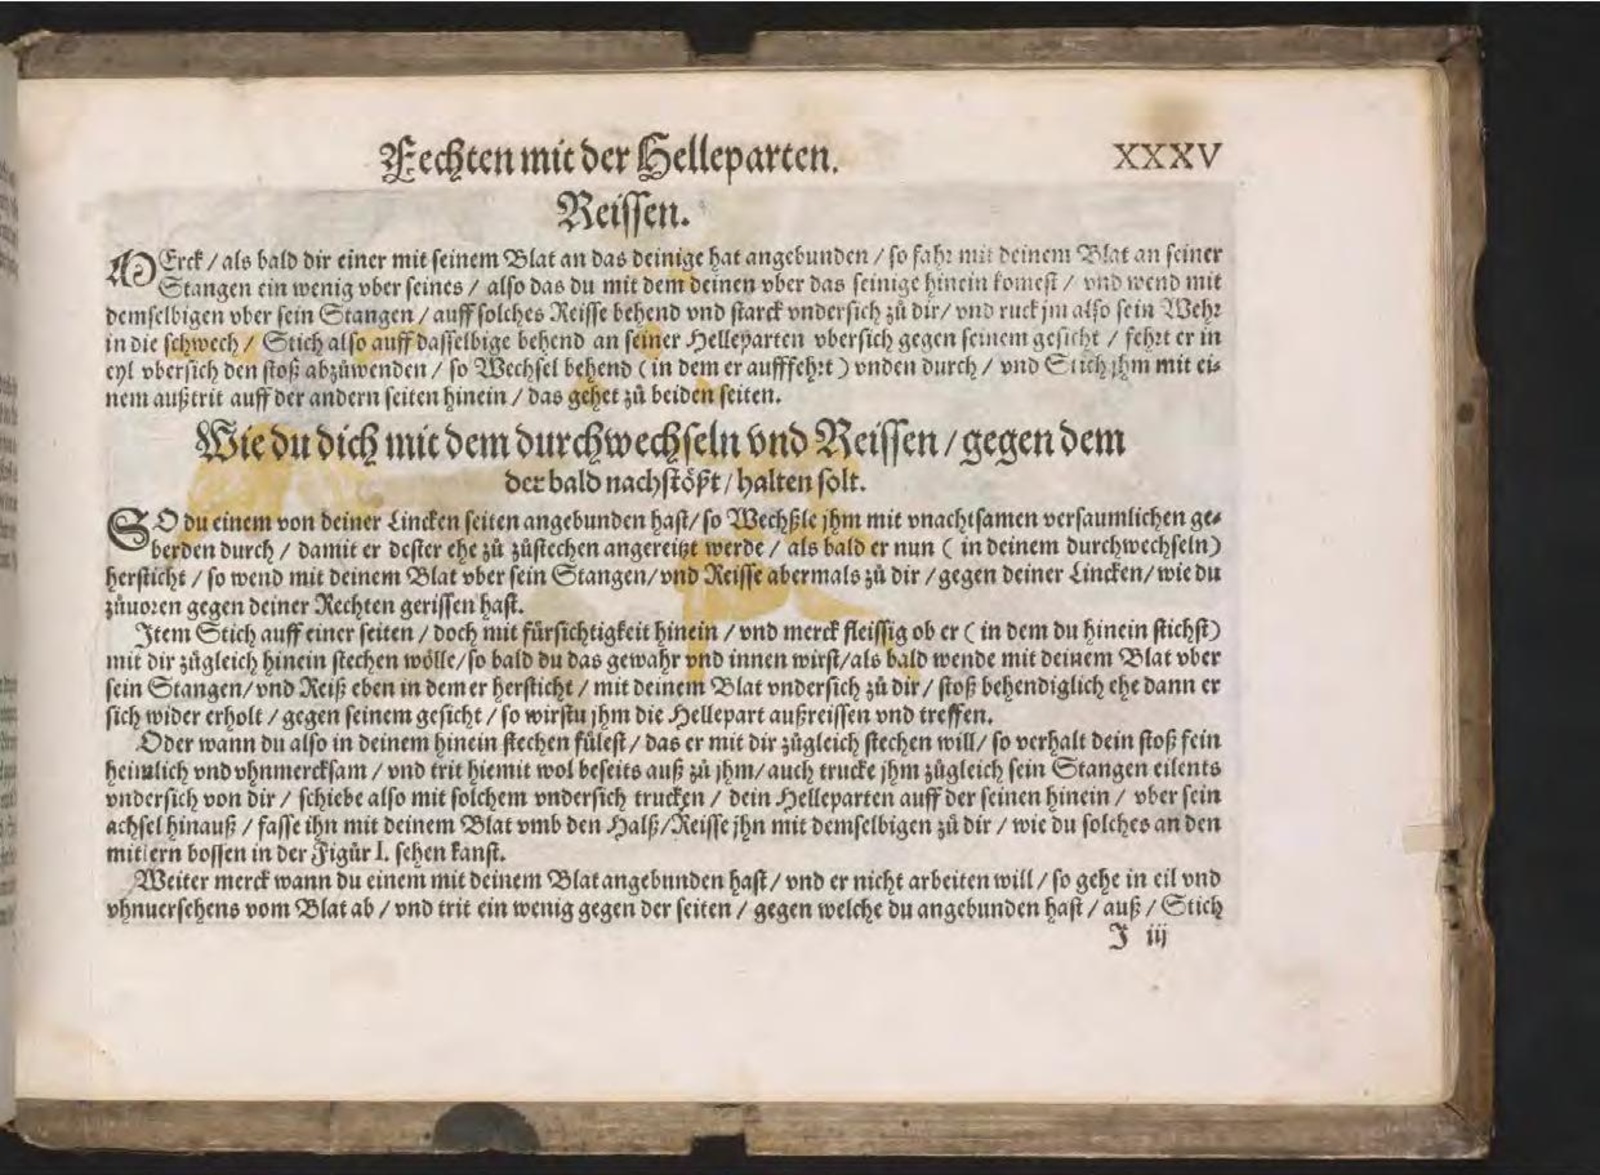 Fechten mit der Helleparten. XXXV
Reissen.
MErck / als bald dir einer mit seinem Blat an das deinige hat angebunden / so fahr mit deinem Blat an seiner
Stangen ein wenig vber seines / also das du mit dem deinen vber das seinige hinein komest / vnd wend mit
demselbigen vber sein Stangen / auff solches Reisse behend vnd starck vndersich zů dir / vnd ruck jm also sein Wehr
in die schwech / Stich also auff dasselbige behend an seiner Helleparten vbersich gegen seinem gesicht / fehrt er in
eyl vbersich den stoß abzůwenden / so Wechsel behend ( in dem er aufffehrt ) vnden durch / vnd Stich jhm mit ei-
nem außtrit auff der andern seiten hinein / das gehet zů beiden seiten.
Wie du dich mit dem durchwechseln vnd Reissen / gegen dem
der bald nachstößt / halten solt.
SO du einem von deiner Lincken seiten angebunden hast / so Wechßle jhm mit vnachtsamen versaumlichen ge-
berden durch / damit er dester ehe zů zůstechen angereitzt werde / als bald er nun ( in deinem durchwechseln)
hersticht / so wend mit deinem Blat vber sein Stangen / vnd Reisse abermals zů dir / gegen deiner Lincken / wie du
zůuoren gegen deiner Rechten gerissen hast.
Item Stich auff einer seiten / doch mit fürsichtigkeit hinein / vnd merck fleissig ob er ( in dem du hinein stichst)
mit dir zůgleich hinein stechen wölle / so bald du das gewahr vnd innen wirst / als bald wende mit deinem Blat vber
sein Stangen / vnd Reiß eben in dem er hersticht / mit deinem Blat vndersich zů dir / stoß behendiglich ehe dann er
sich wider erholt / gegen seinem gesicht / so wirstu jhm die Hellepart außreissen vnd treffen.
Oder wann du also in deinem hinein stechen fülest / das er mit dir zůgleich stechen will / so verhalt dein stoß fein
heimlich vnd vhnmercksam / vnd trit hiemit wol beseits auß zů jhm / auch trucke jhm zůgleich sein Stangen eilents
vndersich von dir / schiebe also mit solchem vndersich trucken / dein Helleparten auff der seinen hinein / vber sein
achsel hinauß / fasse ihn mit deinem Blat vmb den Halß / Reisse jhn mit demselbigen zů dir / wie du solches an den
mitlern bossen in der Figůr I. sehen kanst.
Weiter merck wann du einem mit deinem Blat angebunden hast / vnd er nicht arbeiten will / so gehe in eil vnd
vhnuersehens vom Blat ab / vnd trit ein wenig gegen der seiten / gegen welche du angebunden hast / auß / Stich
J iij